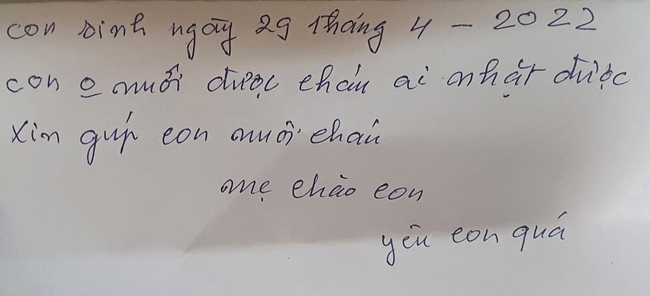 con sinh ngày 29 tháng 4 - 2022
con o nuôi được cháu ai nhặt được
xin giúp con nuôi cháu
mẹ chào con
yêu con quá